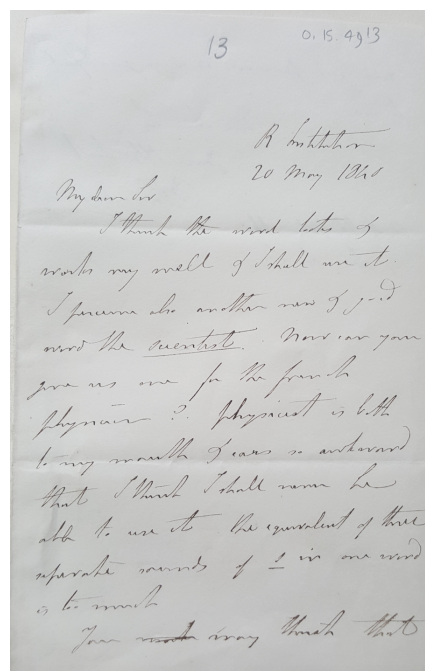 13
O.15.49 13
R Institution
20 May 1840
My dear Sir
I think the word looks &
works very well & I shall use it.
I perceive also another new & good
word the scientist. Now can you
give us one for the french
physicien? physicist is both
to my mouth & ears so awkward
that I think I shall never be
able to use it the equivalent of three
separate sounds of s in one word
is too much
You may think that